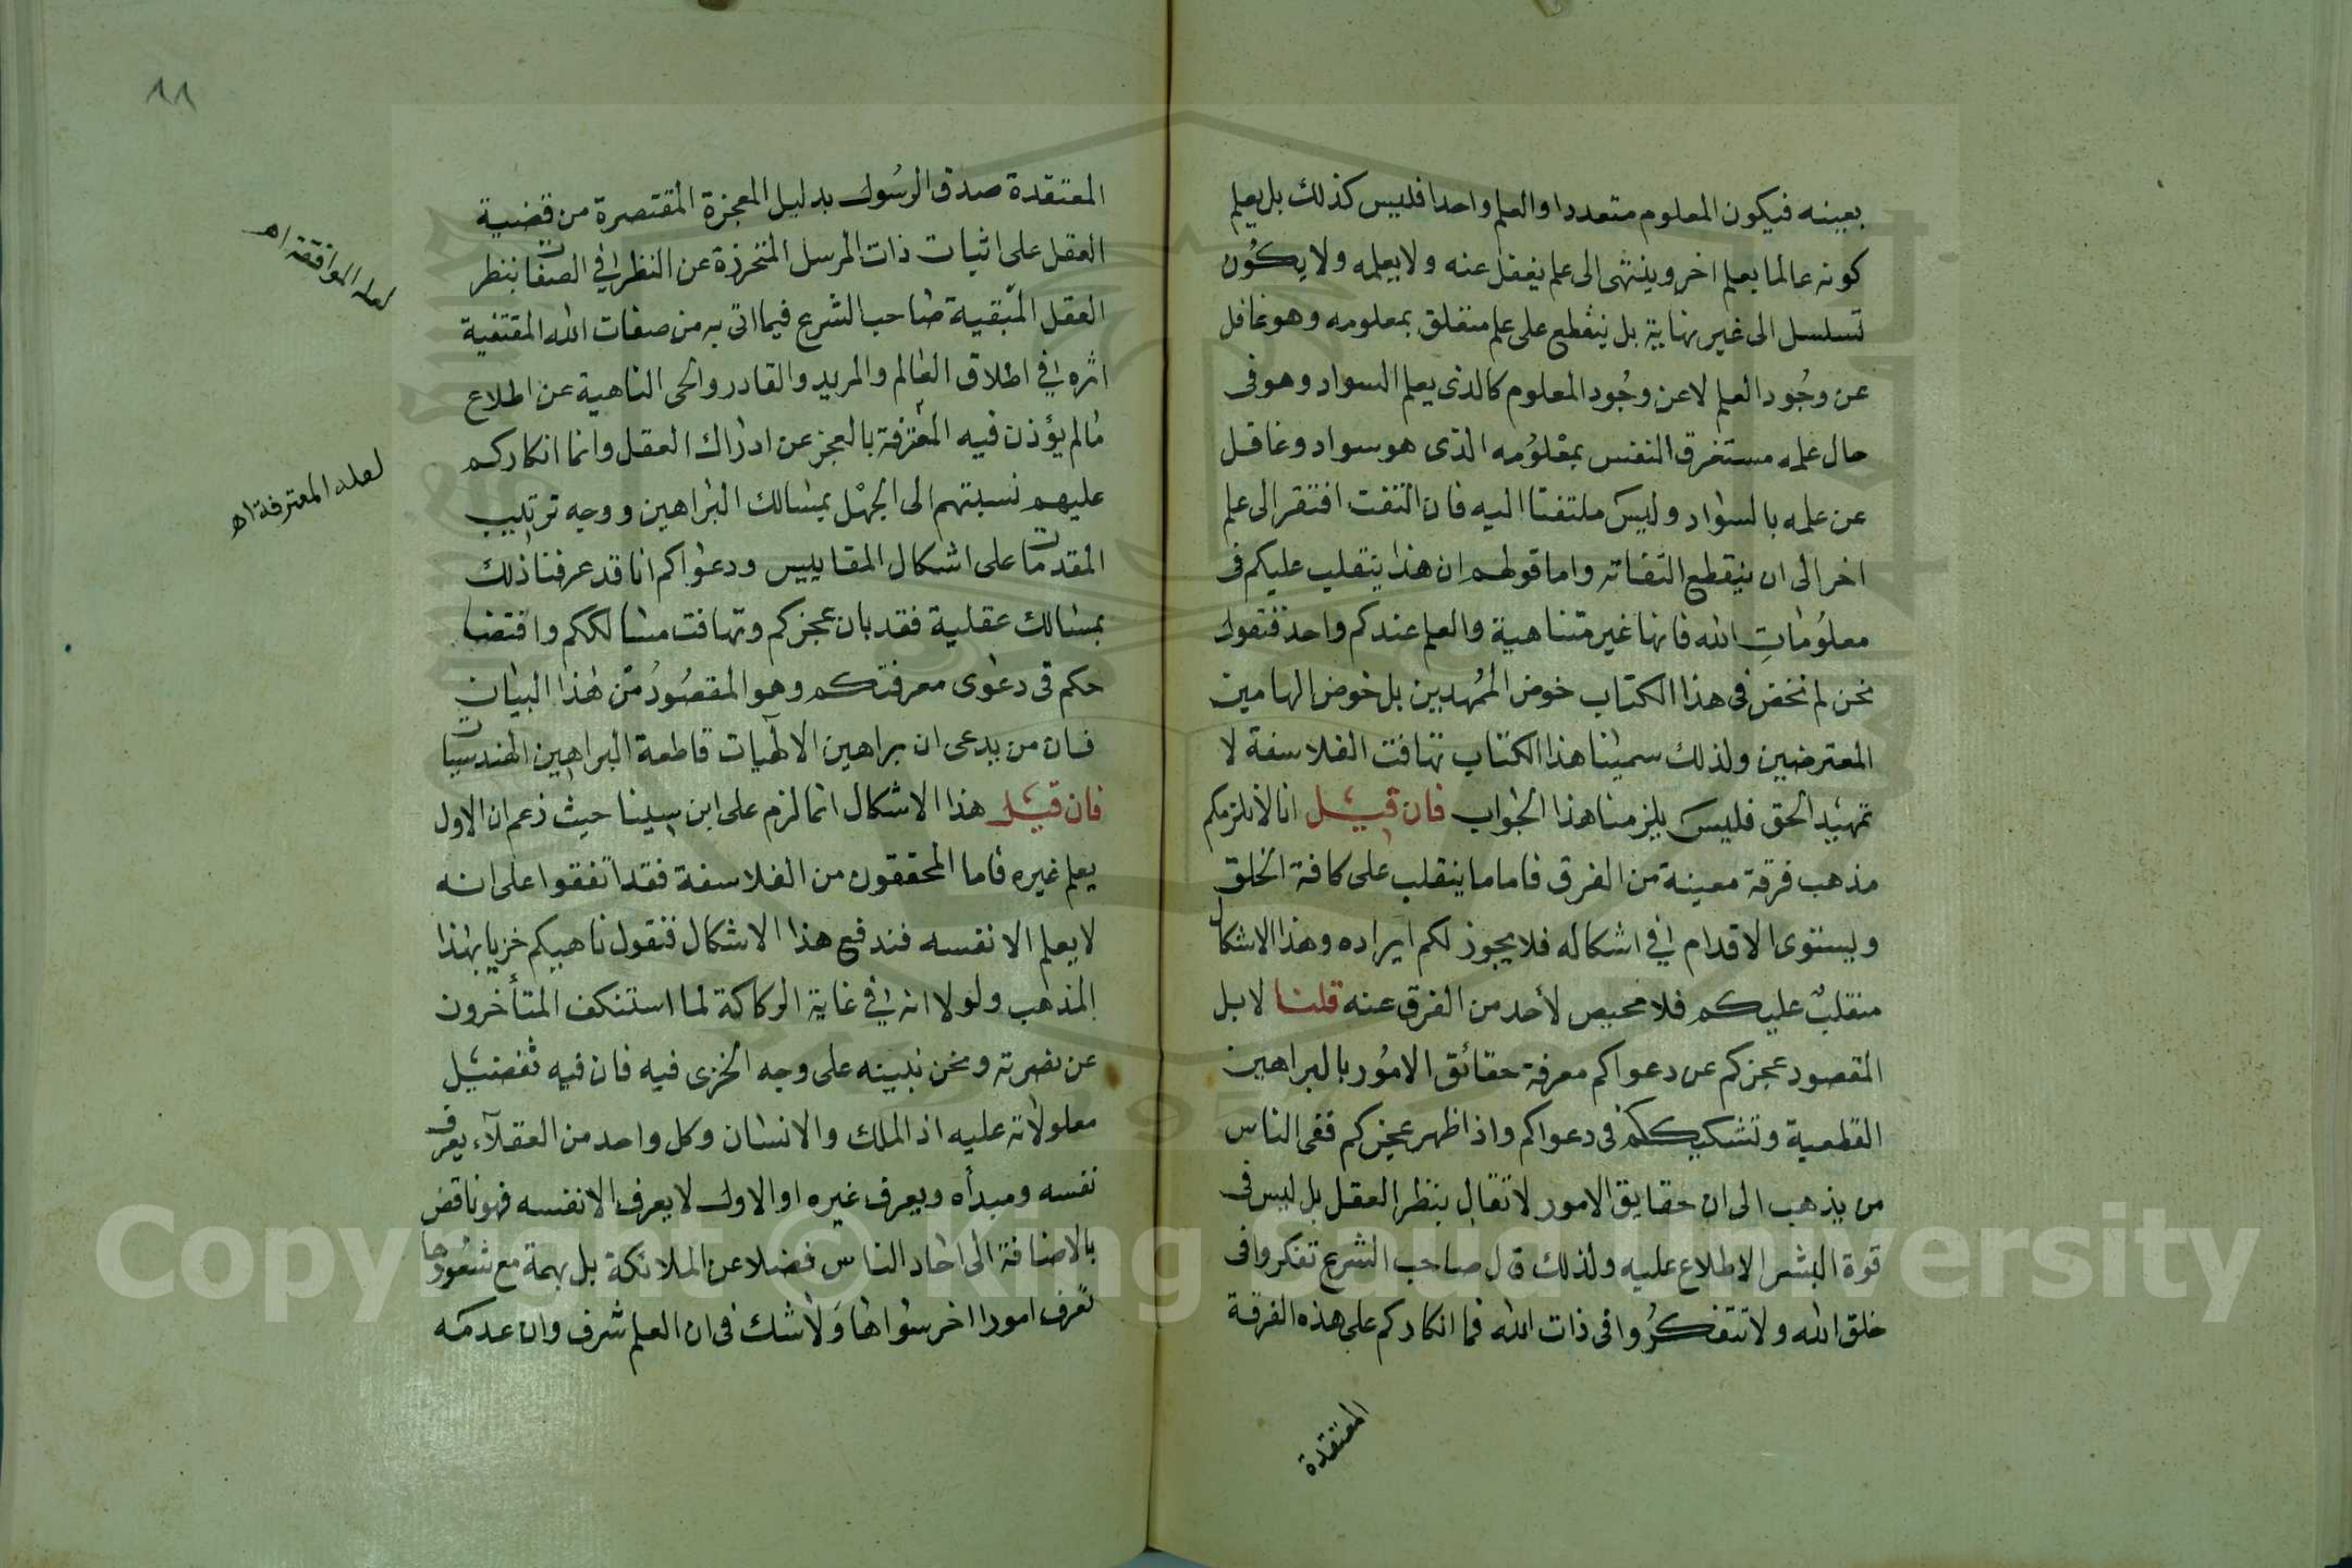 بعينه فيكون المعلوم متعددا والعلم واحدا فليس كذلك بل يعلم
كونه عالما بعلم اخر وينتهى الى علم يغفل عنه ولا يعلمه ولا يكون
تسلسل الى غير نهاية بل ينقطع على علم متعلق بمعلومه وهو غافل
عن وجود العلم لا عن وجود المعلوم كالذى يعلم السواد وهو فى
حال علمه مستغرق النفس بمعلومه الذى هو سواد وغافل
عن علمه بالسواد وليس ملتفتا اليه فان التفت افتقر الى علم
اخر الى ان ينقطع التفاته واما قولهم ان هذا ينقلب عليكم فى
معلومات الله فانها غير متناهية والعلم عندكم واحد فنقول
نحن لم نخض فى هذا الكتاب خوض الممهدين بل خوض الهامين
المعترضين ولذلك سمينا هذا الكتاب تهافت الفلاسفة لا
تمهيد الحق فليس يلزمنا هذا الجواب فان قيل انا لا نلزمكم
مذهب فرقة معينة من الفرق فاما ما ينقلب على كافة الخلق
ويستوى الاقدام في اشكاله فلا يجوز لكم ايراده وهذا الاشكال
منقلب عليكم فلا محيص لأحد من الفرق عنه قلنا لا بل
المقصود عجزكم عن دعواكم معرفة حقائق الامور بالبراهين
القطعية وتشكيككم فى دعواكم واذا ظهر عجزكم ففى الناس
من يذهب الى ان حقايق الامور لا تقال بنظر العقل بل ليس فى
قوة البشر الاطلاع عليه ولذلك قال صاحب الشرع تفكروا فى
خلق الله ولا تتفكروا فى ذات الله فما انكاركم على هذه الفرقة
المعتقدة
١١
المعتقدة صدق الرسول بدليل المعجزة المقتصرة من قضية
العقل على اثبات ذات المرسل المتحرزة عن النظر في الصفات بنظر
العقل المتبقية صاحب الشرع فيما اتى به من صفات الله المقتفية
اثره في اطلاق العالم والمريد والقادر والحى الناهية عن اطلاع
مالم يؤذن فيه المعترفة بالعجز عن ادراك العقل وانما انكاركم
عليهم نسبتهم الى الجهل بمسالك البراهين ووجه ترتيب
المقدمات على اشكال المقاييس ودعواكم انا قد عرفنا ذلك
بمسالك عقلية فقد بان عجزكم وتهافت مسالككم وافتضا
حكم فى دعوى معرفتكم وهو المقصود من هذا البيان
فان من يدعى ان براهين الالهيات قاطعة البراهين الهندسيات
فان قيل هذا الاشكال انما لزم على ابن سينا حيث زعم ان الاول
يعلم غيره فاما المحققون من الفلاسفة فقد اتفقوا على انه
لا يعلم الا نفسه فندفع هذا الاشكال فنقول ناهيكم خزيا بهذا
المذهب ولولا انه في غاية الركاكة لما استنكف المتأخرون
عن نصرته ونحن نبينه على وجه الخزى فيه فان فيه تفضيل
معلولاته عليه اذ الملك والانسان وكل واحد من العقلاء يعرف
نفسه ومبدأه ويعرف غيره اوالاول لا يعرف الا نفسه فهو ناقض
بالاضافة الى احاد الناس فضلا عن الملائكة بل بهمة مع شعورها
تعرف امورا اخر سواها ولا شك فى ان العلم شرف وان عدمه
لعله الموافقة اه
لعله المعترفة اه
Copyright © King Saud University
1957